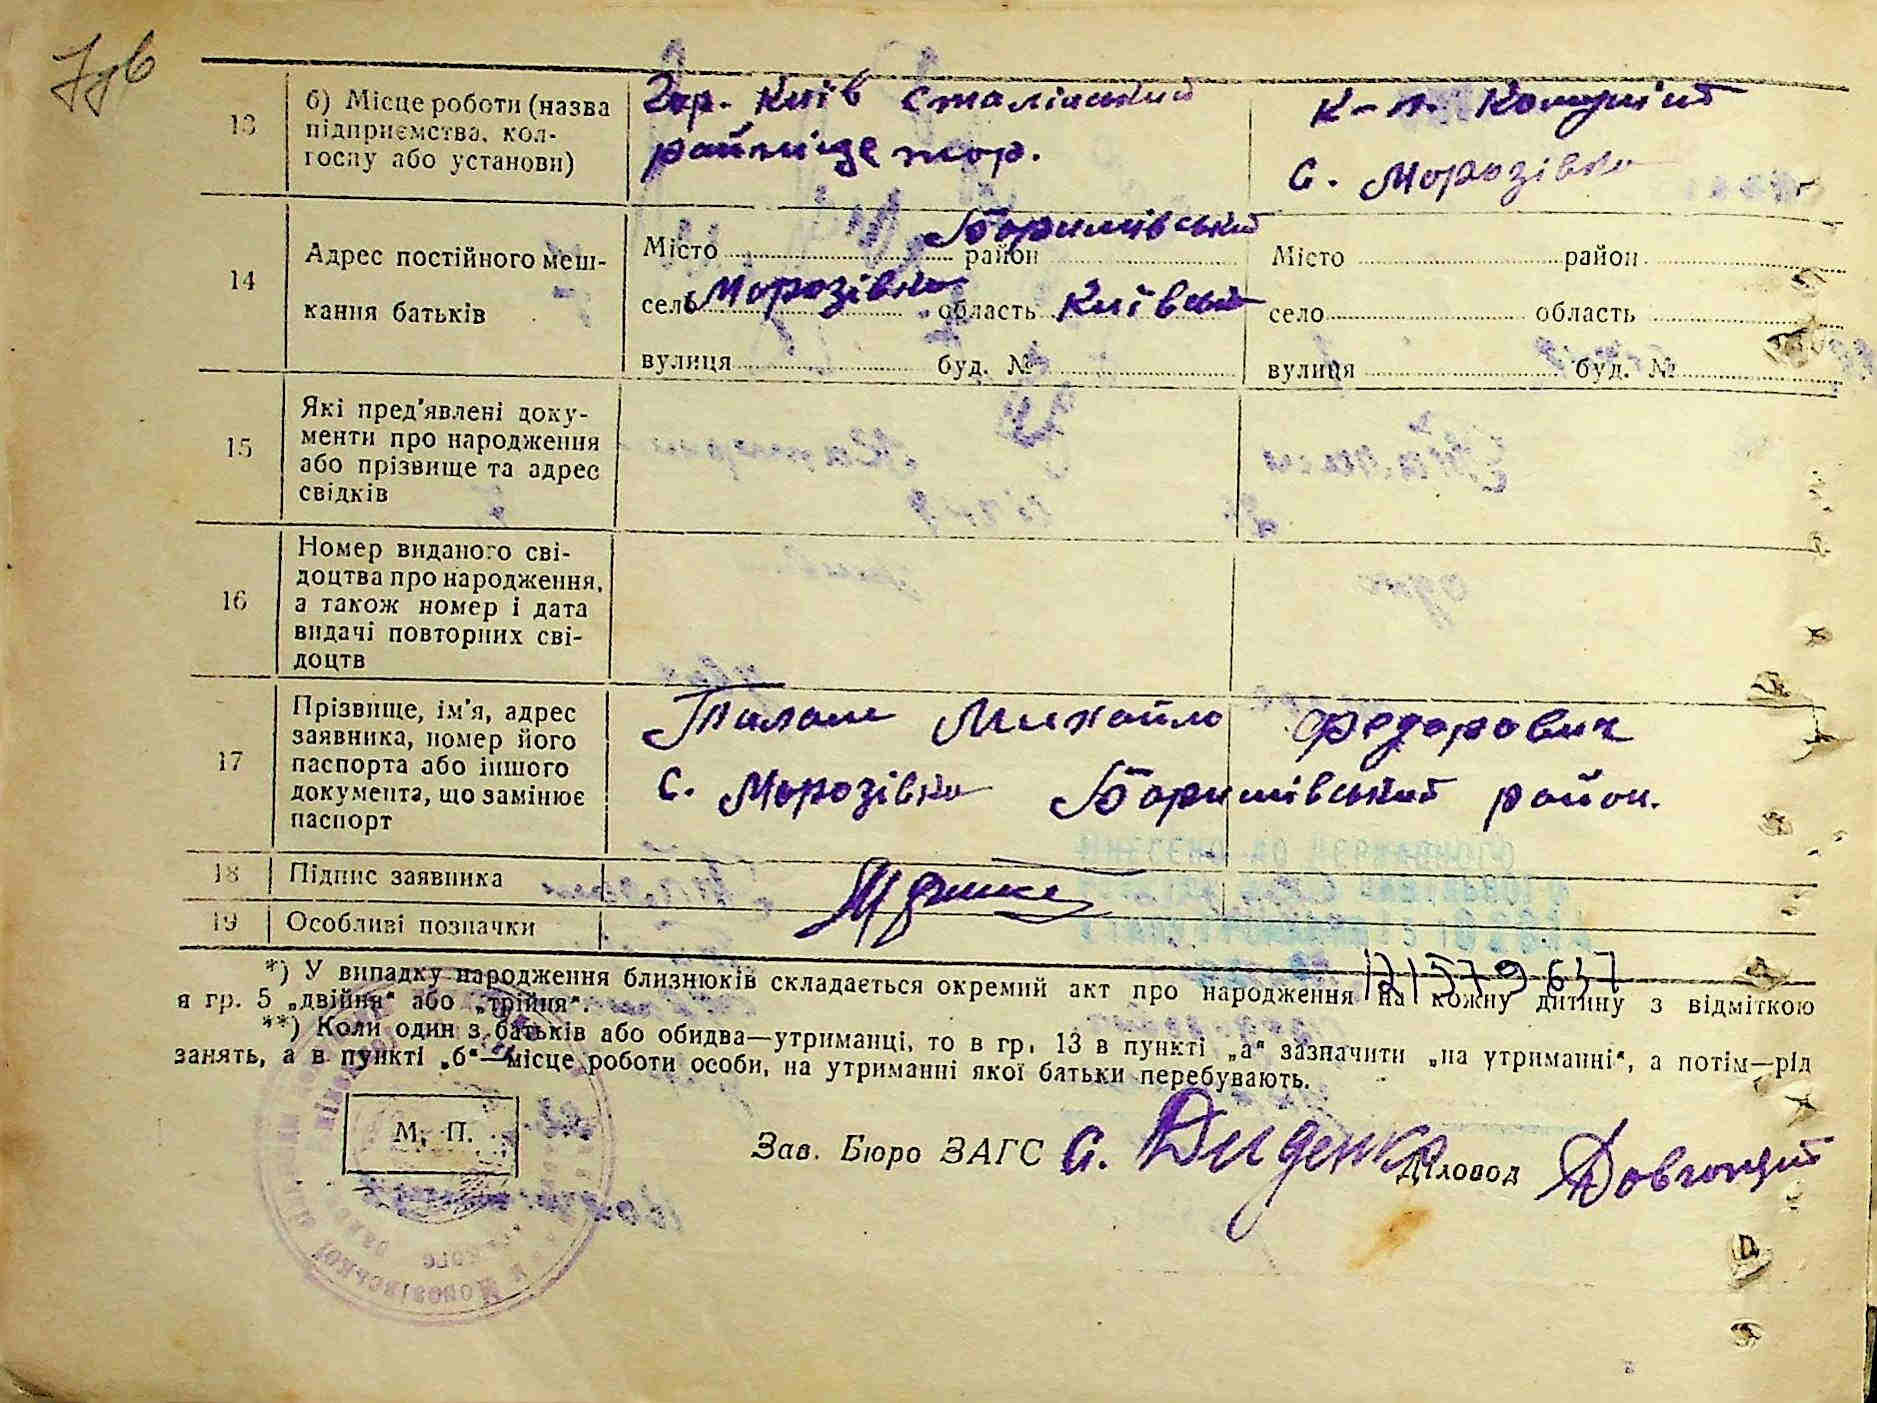 13
б) Місце роботи (назва
підприємства, кол-
госпу або установи)
Гор. Київ Сталінський
К-п. Комунист
С. Морозівка
14
Адрес постійного меш-
кання батьків
Місто район Баришівський
село Морозівка область Київська
вулиця буд. №
Місто район
село область
вулиця буд. №
15
Які пред'явлені доку-
менти про народження
або прізвище та адрес
свідків
16
Номер виданого сві-
доцтва про народження,
а також номер і дата
видачі повторних сві-
доцтв
17
Прізвище, ім'я, адрес
заявника, номер його
паспорта або іншого
документа, що замінює
паспорт
Михайло Федорович
С. Морозівка Баришівський район.
18
Підпис заявника
19
Особливі позначки
*) У випадку народження близнюків складається окремий акт про народження на кожну дитину з відміткою
я гр. 5 „двійня“ або „трійня“.
**) Коли один з батьків або обидва—утриманці, то в гр. 13 в пункті „а“ зазначити „на утриманні“, а потім—рід
занять, а в пункті „б“—місце роботи особи, на утриманні якої батьки перебувають.
М. П.
Зав. Бюро ЗАГС С. Диденко Діловод